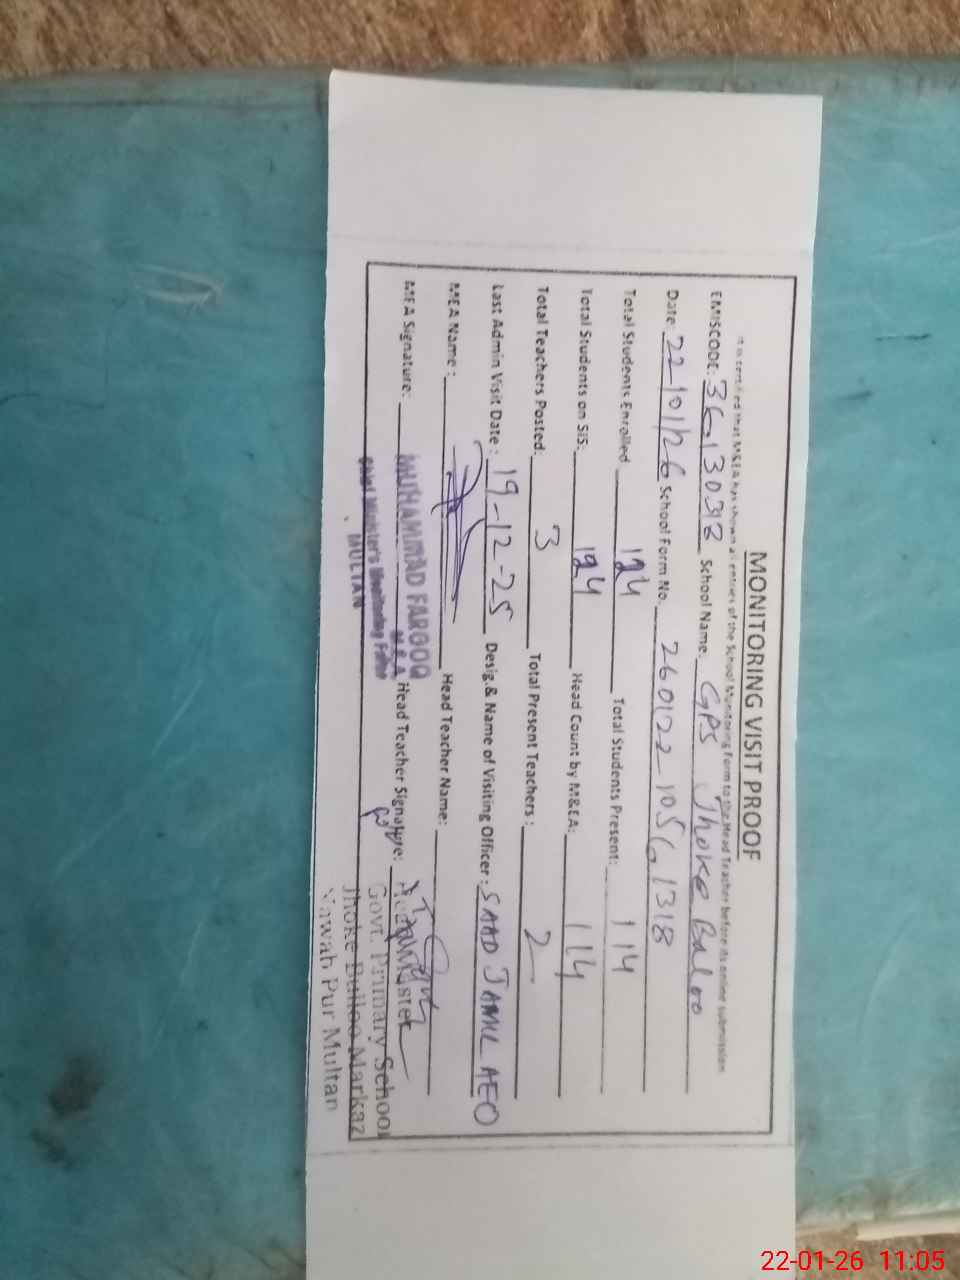 MONITORING VISIT PROOF
It is certified that M&EA has shown all entries of the School Monitoring Form to the Head Teacher before its online submission
EMISCODE: School Name: GPS Jhoke Baloo
Date: 22/01/26 School Form No. 260122-10561318
Total Students Enrolled 124 Total Students Present: 114
Total Students on SIS: 124 Head Count by M&EA: 114
Total Teachers Posted: 3 Total Present Teachers: 2
Last Admin Visit Date: 19-12-25 Desig.& Name of Visiting Officer: SAAD JAMIL AEO
MEA Name: Head Teacher Name:
MEA Signature: Head Teacher Signature:
MUHAMMAD FAROOQ
M.E.A
Chief Minister's Monitoring Force
MULTAN
Head Master
Govt. Primary School
Jhoke Bulloo Markaz
Nawab Pur Multan
22-01-26 11:05